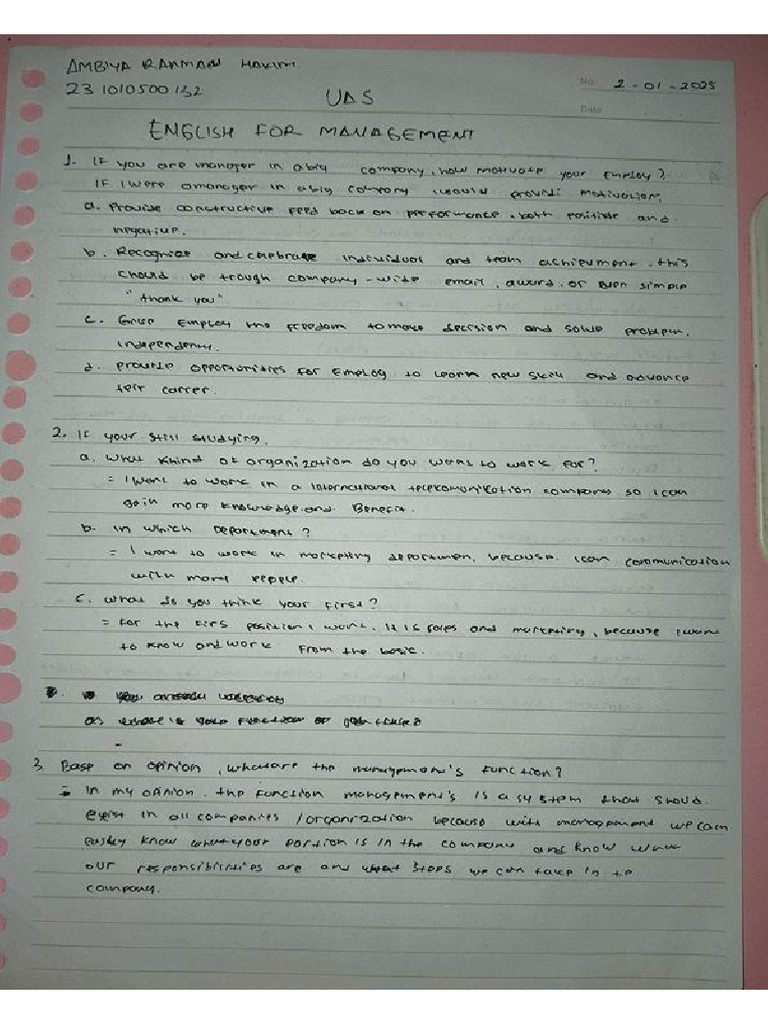 AMBIYA RAHMAN HAKIM
No. 2-01-2025
231010500132
UAS
Date
ENGLISH FOR MANAGEMENT
1. IF you are manager in abig company, how motivate your Employ?
IF I were amanager in abig company I would provide motivation,
a. Provide constructive Feed back on performance, both positive and
negative.
b. Recognize and celebrate individual and team achievment. this
should be trough company-wide email, award, or even simple
"thank you"
c. Give Employ the Freedom tomake decision and solve problem,
independeny.
d. provide opportunities for Employ to learn new skill and advance
teir carrer.
2. If your still studying,
a. what khind of organization do you want to work for?
= I want to work in a international telecomunikation company so I can
gain more knowledge and Benefit.
b. in which Department?
= I want to work in marketing departmen, because I can communication
with many people.
c. what do you think your first?
= for the firs position I want, it is sales and marketing, because I want
to know and work from the basic.
3. Base on opinion, what are the management's function?
= In my opinion, the function management's is a system that should
exist in all companies / organization because with management we can
easley know what your portion is in the company and know what
our responsibilities are and what steps we can take in to
company.